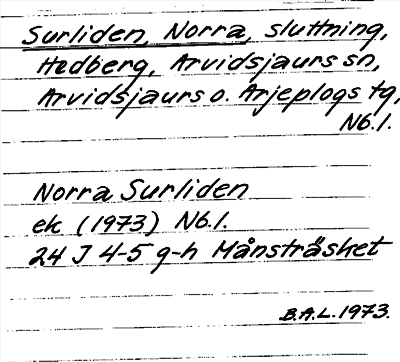 Surliden, Norra, sluttning,
Hedberg, Arvidsjaurs sn,
Arvidsjaurs o. Arjeplogs tg,
Nb.l.
Norra Surliden
ek (1973) Nb.l.
24 J 4-5 g-h Månsträsket
B.A.L. 1973.